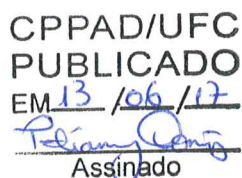 CPPAD/UFC
PUBLICADO
EM 13 / 06 / 17
Assinado